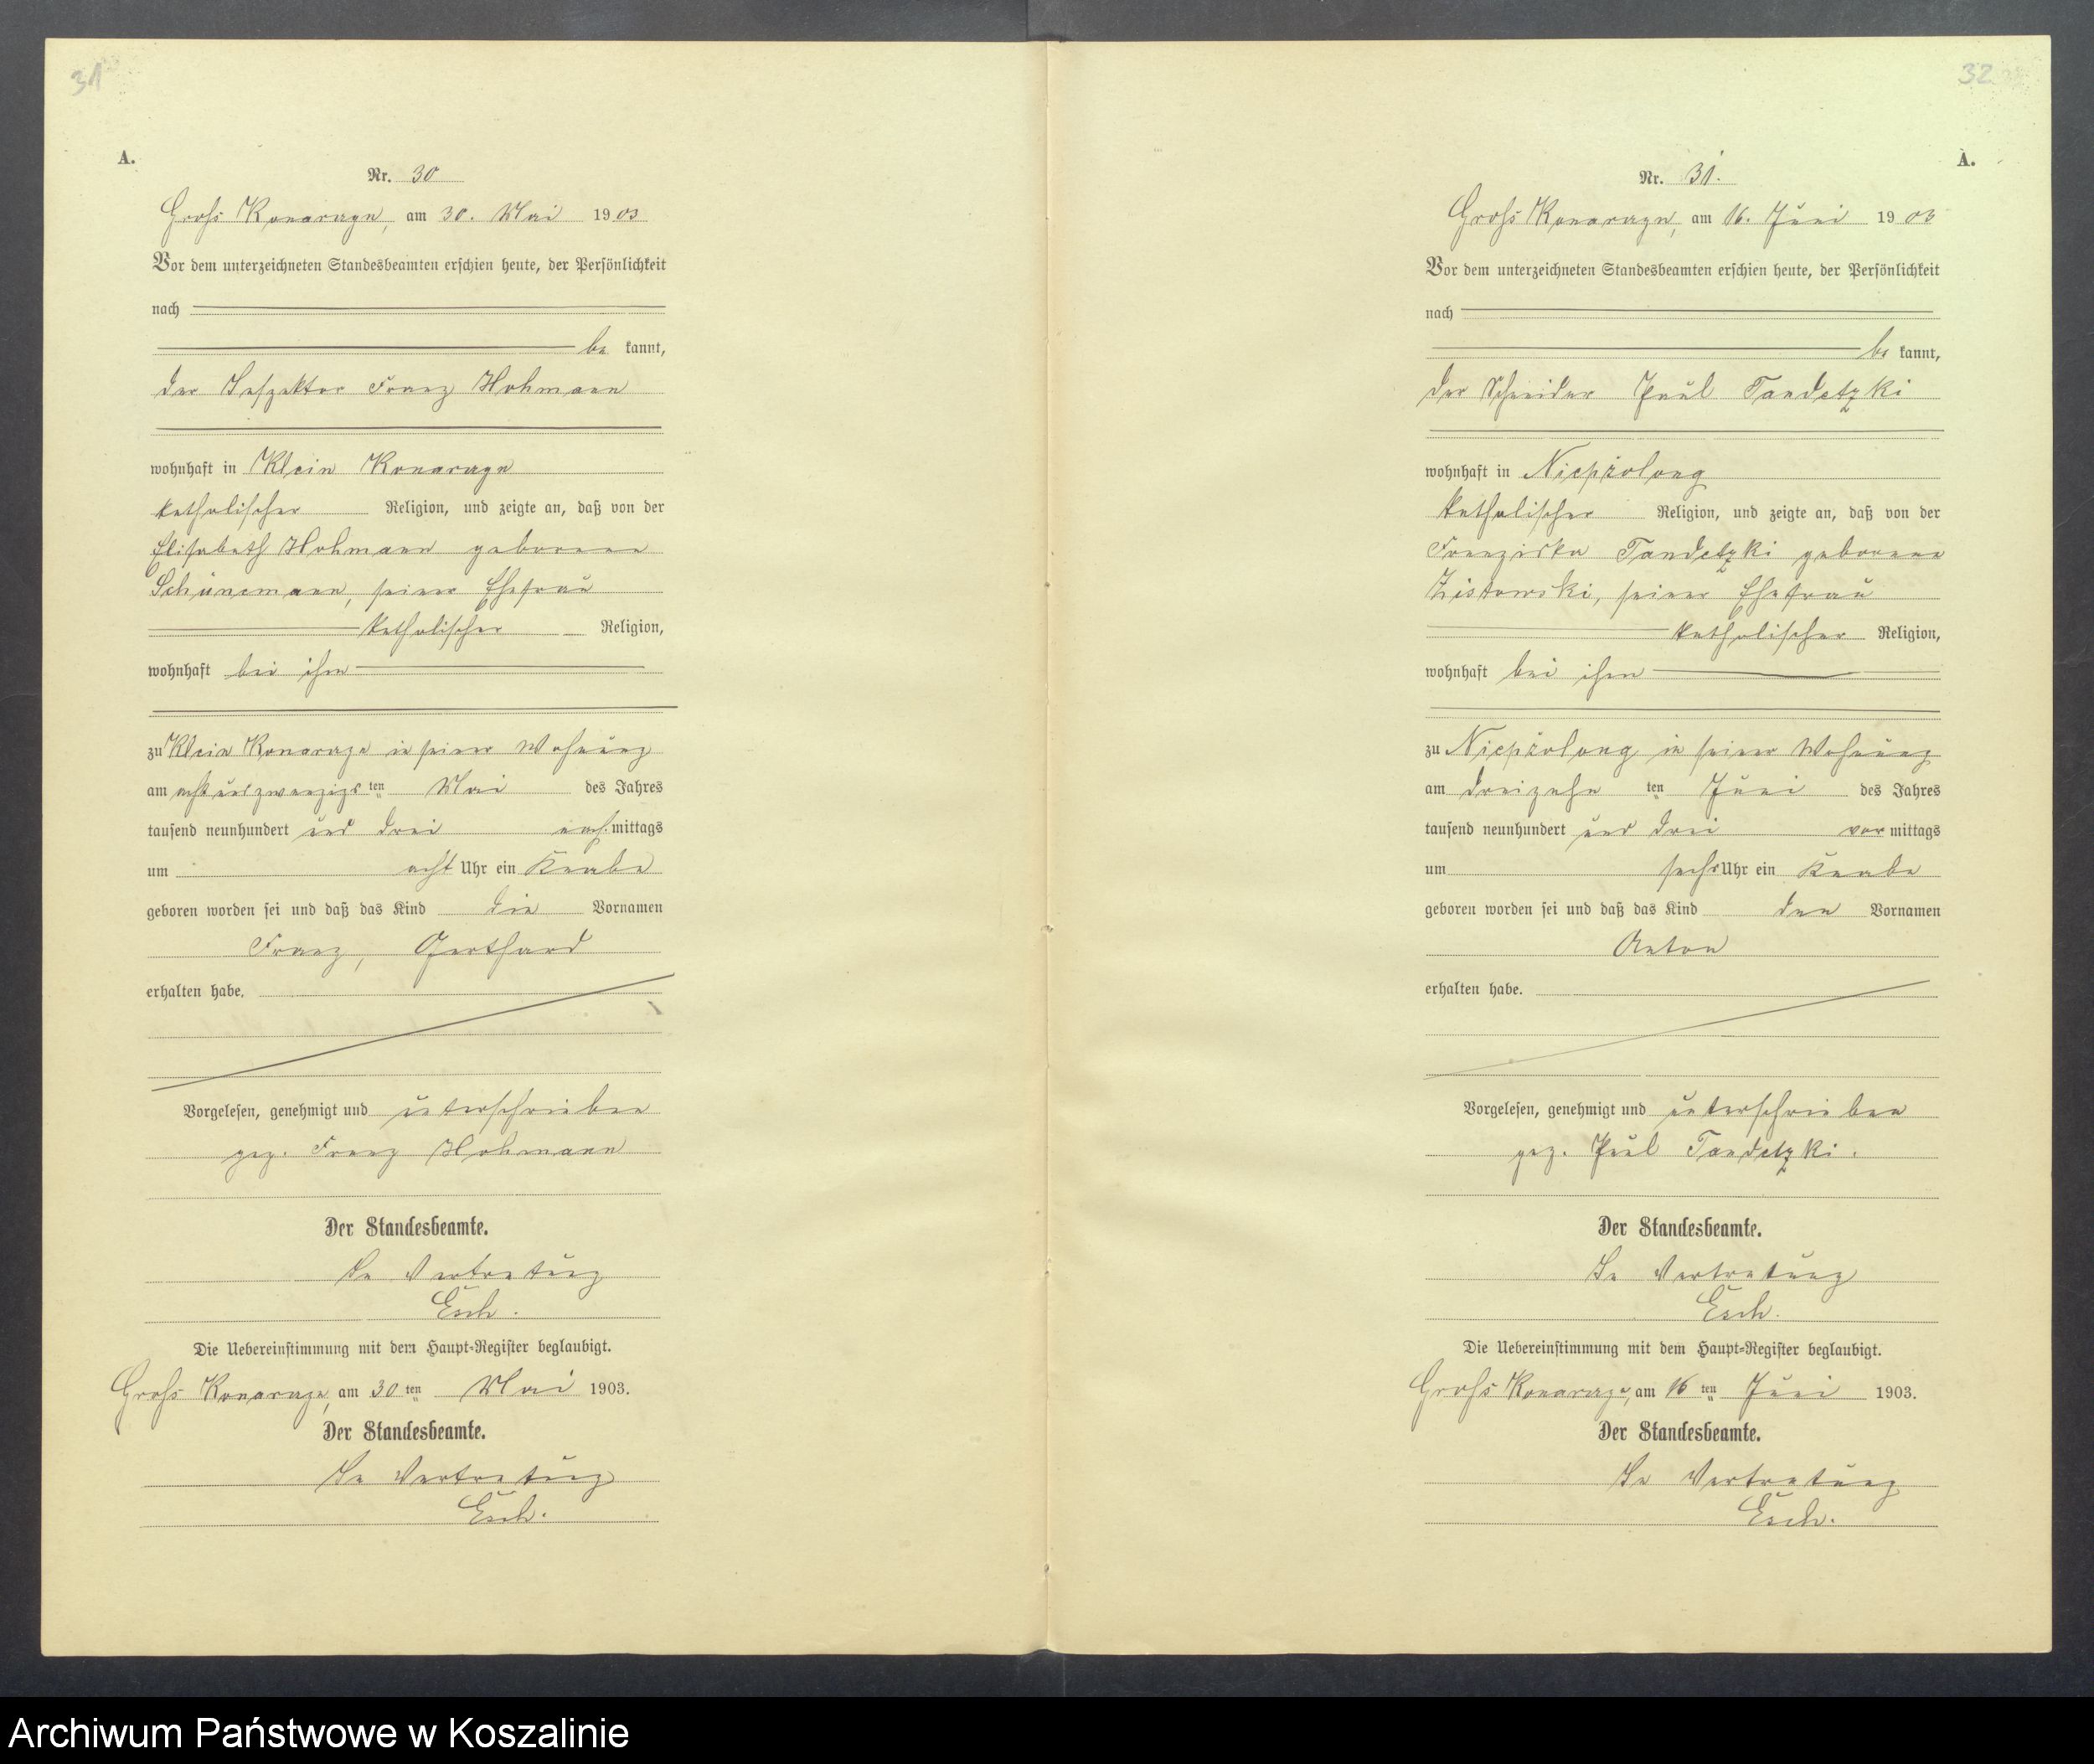 31
A.
Nr. 30
Groß Konarczyn, am 30. Mai 1903
Vor dem unterzeichneten Standesbeamten erschien heute, der Persönlichkeit
nach
be kannt,
der Inspektor Franz Hohmann
wohnhaft in Klein Konarczyn
katholischer Religion, und zeigte an, daß von der
Elisabeth Hohmann geborene
Schünemann, seiner Ehefrau
katholischer Religion,
wohnhaft bei ihm
zu Klein Konarczyn in seiner Wohnung
am acht und zwanzigs ten Mai des Jahres
tausend neunhundert und drei nach mittags
um acht Uhr ein Knabe
geboren worden sei und daß das Kind die Vornamen
Franz, Gerthard
erhalten habe.
Vorgelesen, genehmigt und unterschrieben
gez. Franz Hohmann
Der Standesbeamte.
In Vertretung
Esch.
Die Uebereinstimmung mit dem Haupt-Register beglaubigt.
Groß Konarczyn, am 30 ten Mai 1903.
Der Standesbeamte.
In Vertretung
Esch.
32
A.
Nr. 31.
Groß Konarczyn, am 16. Juni 1903
Vor dem unterzeichneten Standesbeamten erschien heute, der Persönlichkeit
nach
be kannt,
der Schneider Paul Tandetzki
wohnhaft in Niepszolong
katholischer Religion, und zeigte an, daß von der
Franziska Tandetzki geborene
seiner Ehefrau
katholischer Religion,
wohnhaft bei ihm
zu Niepszolong in seiner Wohnung
am dreizehn ten Juni des Jahres
tausend neunhundert und drei vor mittags
um sechs Uhr ein Knabe
geboren worden sei und daß das Kind den Vornamen
Anton
erhalten habe.
Vorgelesen, genehmigt und unterschrieben
gez. Paul Tandetzki.
Der Standesbeamte.
In Vertretung
Esch.
Die Uebereinstimmung mit dem Haupt-Register beglaubigt.
Groß Konarczyn, am 16 ten Juni 1903.
Der Standesbeamte.
In Vertretung
Esch.
Archiwum Państwowe w Koszalinie